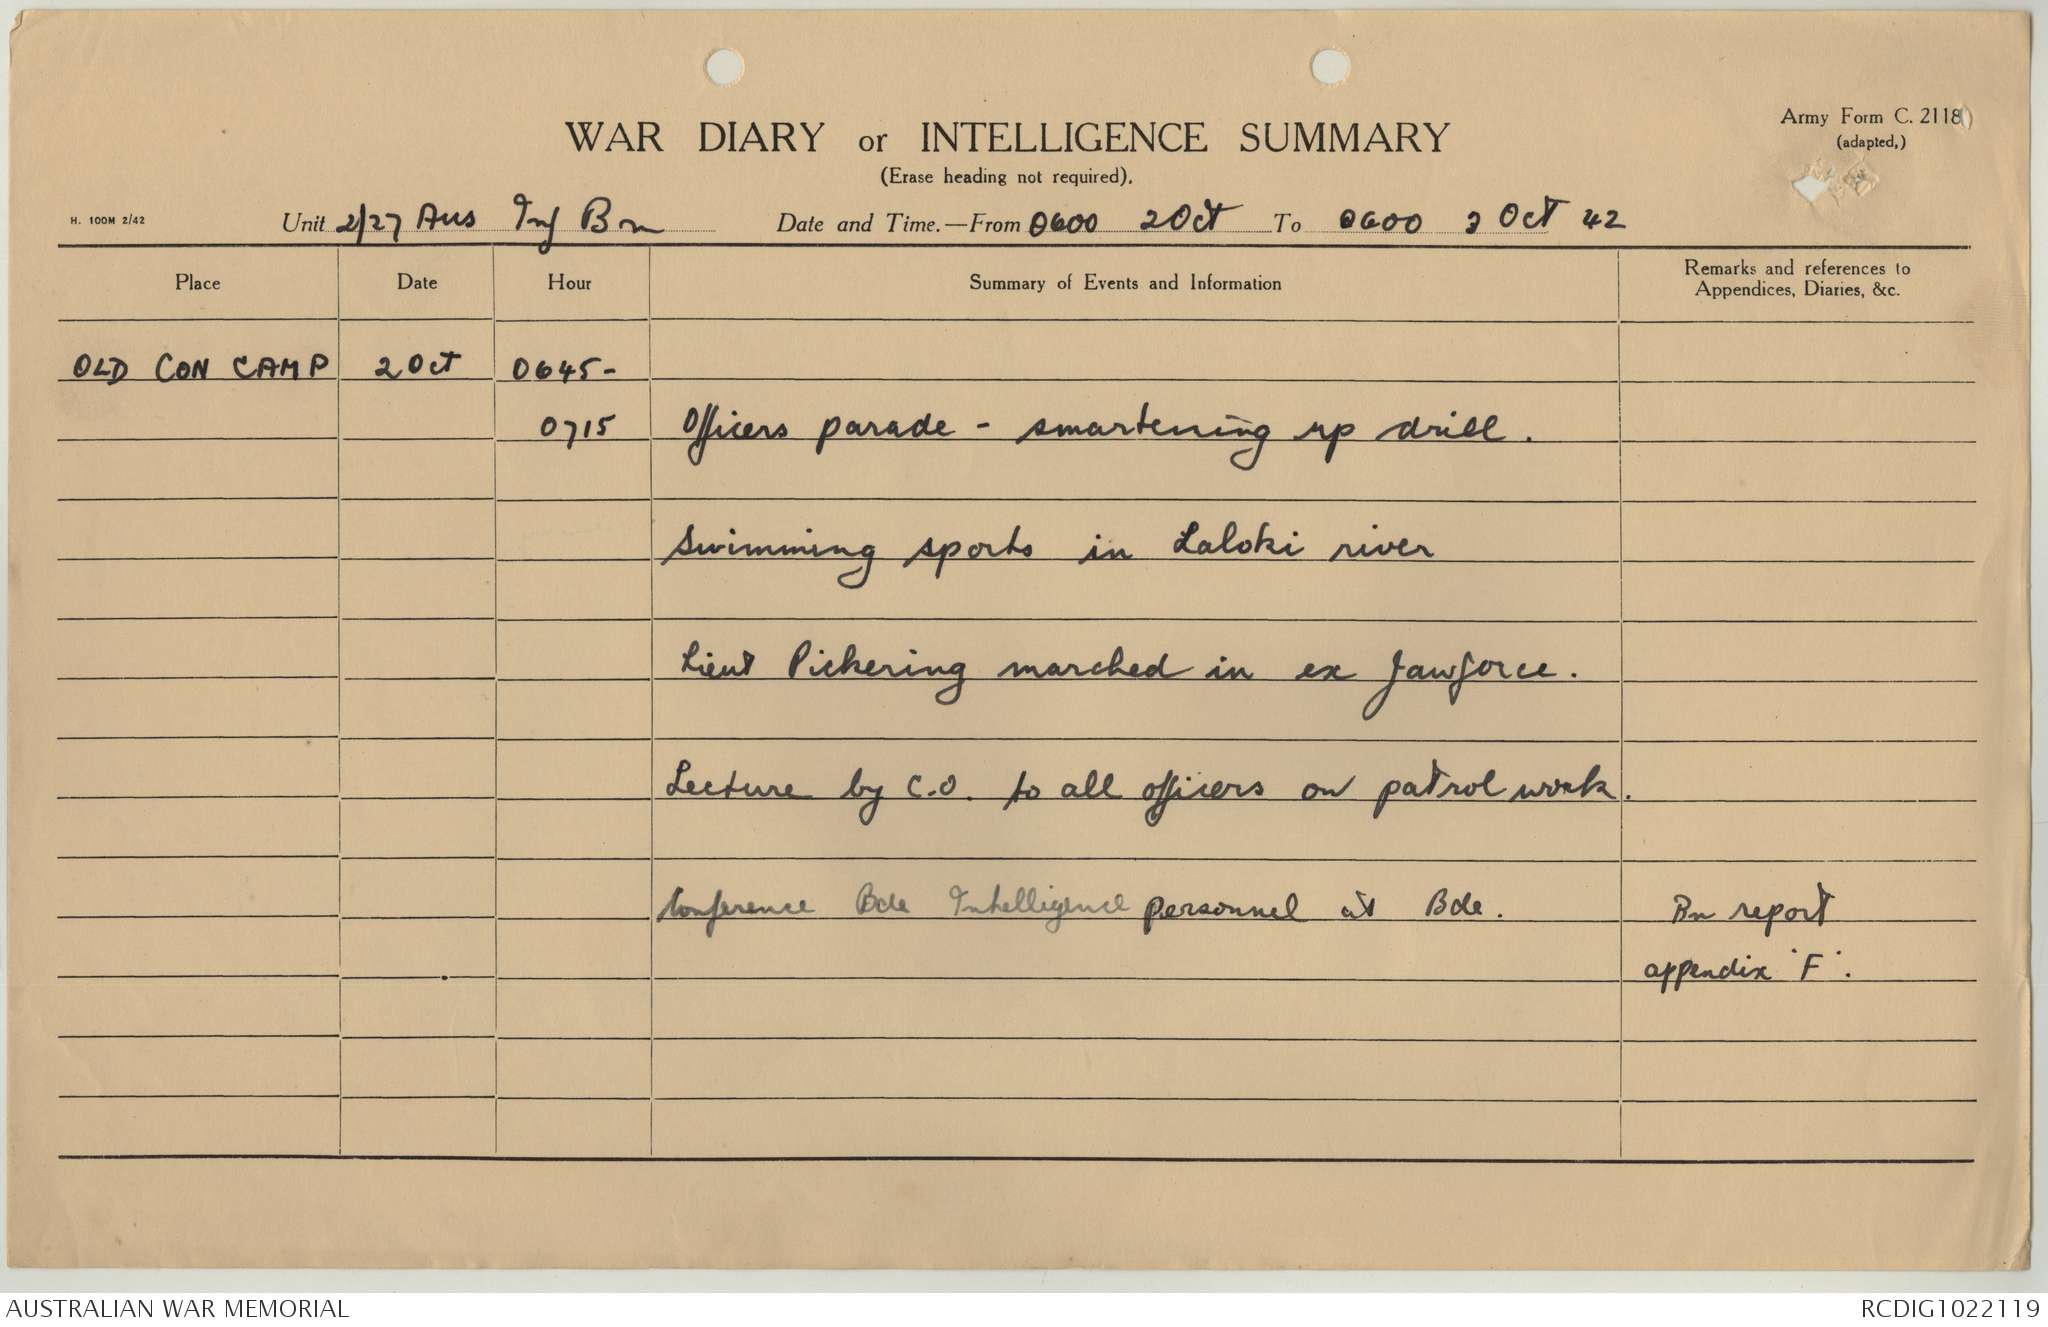 Army Form C. 2118
(adapted,)
WAR DIARY or INTELLIGENCE SUMMARY
(Erase heading not required).
H. 100M 2/42
Unit 2/27 Aus Inf Bn Date and Time.—From 0600 2 Oct To 0600 3 Oct 42
Place Date Hour Summary of Events and Information Remarks and references to
Appendices, Diaries, &c.
OLD CON CAMP 2 Oct 0645-
0715 Officers parade - smartening up drill.
Swimming sports in Laloki river
Lieut Pickering marched in ex Jawforce.
Lecture by C.O. to all officers on patrol work.
Conference Bde Intelligence personnel at Bde. Bn report
appendix 'F'.
AUSTRALIAN WAR MEMORIAL RCDIG1022119